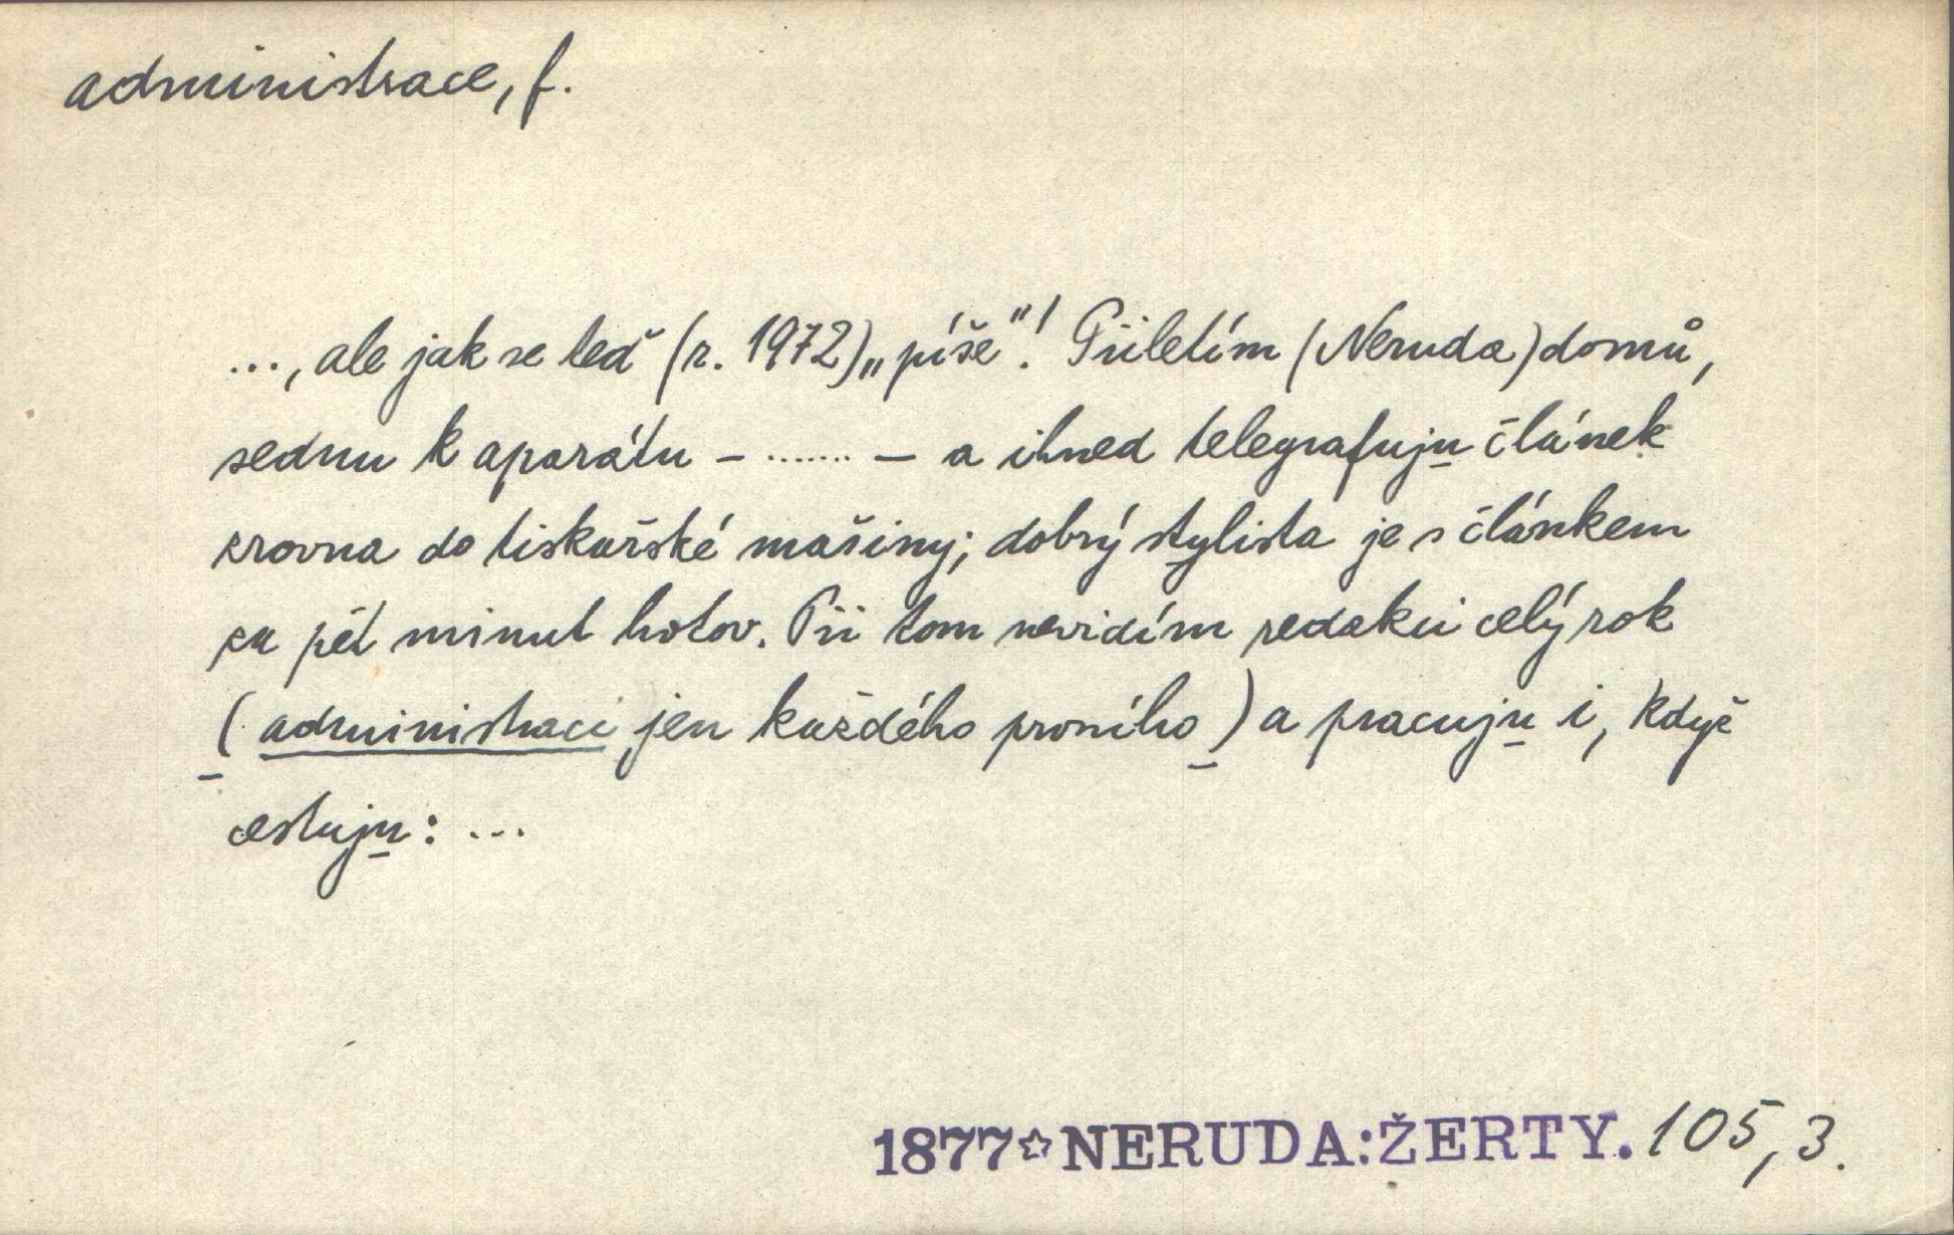 administrace, f.
..., ale jak se teď (r. 1972) „píše“! Přiletím (Neruda) domů,
sednu k aparátu – ....... – a ihned telegrafuju článek
zrovna do tiskařské mašiny; dobrý stylista je s článkem
za pět minut hotov. Při tom nevidím redakci celý rok
(administraci jen každého prvního) a pracuju i, když
cestuju: ...
1877☆NERUDA:ŽERTY. 105,3.